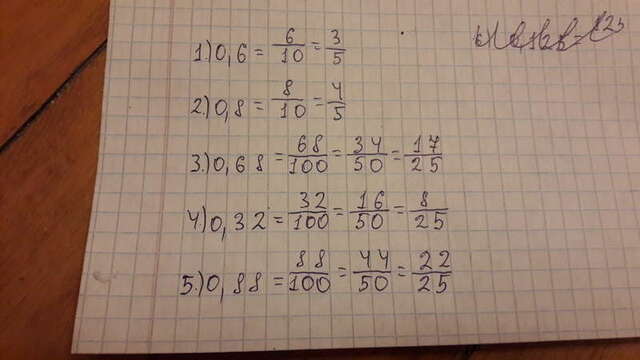 1) 0,6 = 6/10 = 3/5
2) 0,8 = 8/10 = 4/5
3) 0,68 = 68/100 = 34/50 = 17/25
4) 0,32 = 32/100 = 16/50 = 8/25
5) 0,88 = 88/100 = 44/50 = 22/25